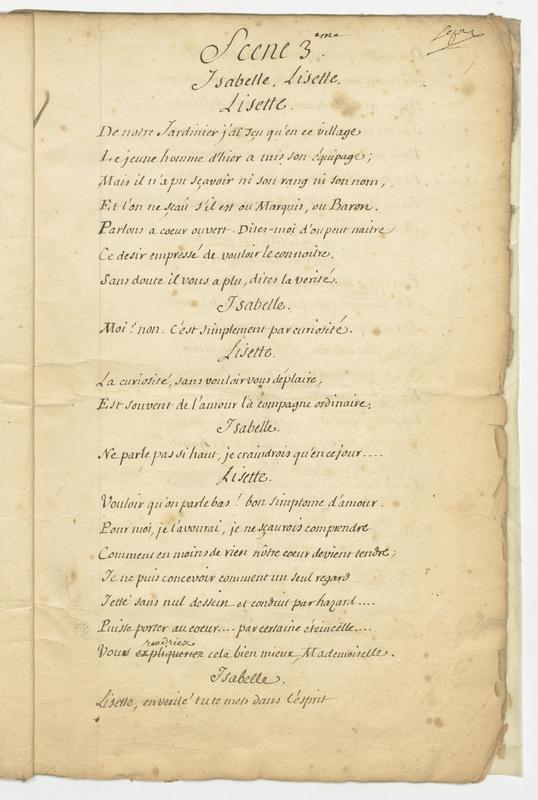 Scene 3eme.
Isabelle, Lisette.
Lisette.
De notre Jardinier j'ai sçu qu'en ce village
Le jeune homme d'hier a mis son équipage;
Mais il n'a pu sçavoir ni son rang ni son nom,
Et l'on ne sçait s'il est ou Marquis, ou Baron.
Parlons a coeur ouvert. Dites-moi d'ou peut naitre
Ce desir empressé de vouloir le connoitre.
Sans doute il vous a plu, dites la verité.
Isabelle.
Moi! non. C'est simplement par curiosité.
Lisette.
La curiosité, sans vouloir vous déplaire,
Est souvent de l'amour la compagne ordinaire.
Isabelle.
Ne parle pas si haut, je craindrois qu'en ce jour....
Lisette.
Vouloir qu'on parle bas! bon simptome d'amour.
Pour moi, je l'avourai, je ne sçaurois comprendre
Comment en moins de rien nôtre coeur devient tendre;
Je ne puis concevoir comment un seul regard
Jetté sans nul dessein et conduit par hazard....
Puisse porter au coeur.... par certaine étincelle....
rendriez
Vous expliqueriez cela bien mieux, Mademoiselle.
Isabelle.
Lisette, en verité tu te mets dans l'ésprit